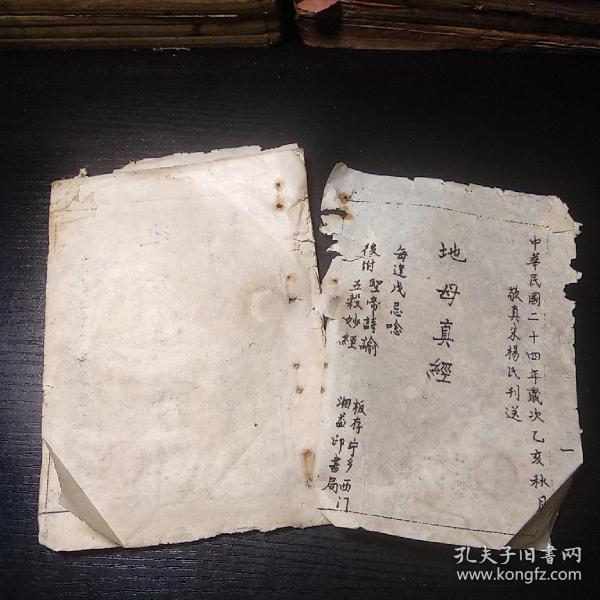 中華民國二十四年歲次乙亥秋月
敬真朱楊氏刊送
地母真經
每逢戊忌唸
後附聖帝詩諭
五穀妙經
板存宁乡西门
湘益印書局
一
孔夫子旧书网
www.kongfz.com